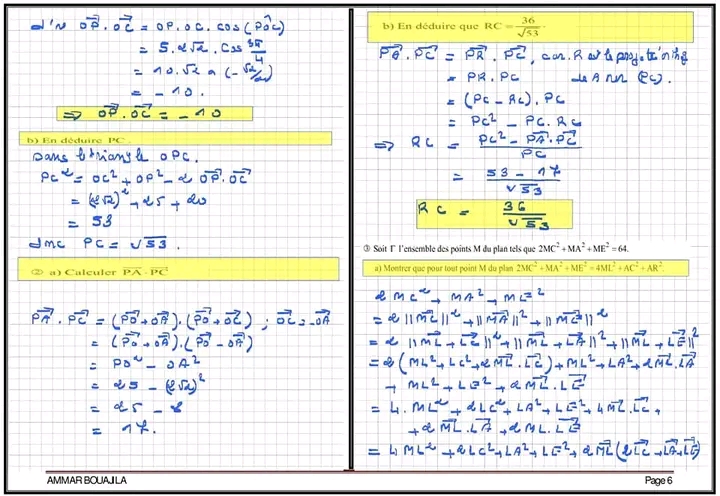 d'où OP⃗ . OC⃗ = OP . OC . cos(PÔC)
= 5 . 2√2 . cos 3π/4
= 10 . √2 × (-√2/2)
= - 10 .
⇒ OP⃗ . OC⃗ = - 10
b) En déduire PC .
Dans le triangle OPC.
PC² = OC² + OP² - 2 OP⃗ . OC⃗
= (2√2)² + 25 + 20
= 53
donc PC = √53 .
② a) Calculer PA⃗ · PC⃗
PA⃗ . PC⃗ = (PO⃗ + OA⃗) . (PO⃗ + OC⃗) ; OC⃗ = -OA⃗
= (PO⃗ + OA⃗) . (PO⃗ - OA⃗)
= PO² - OA²
= 25 - (2√2)²
= 25 - 8
= 17.
b) En déduire que RC = 36/√53 .
PA⃗ . PC⃗ = PR⃗ . PC⃗ , car R est le projeté
= PR . PC de A sur (PC).
= (PC - RC) . PC
= PC² - PC . RC
⇒ RC = (PC² - PA⃗ . PC⃗)/PC
= (53 - 17)/√53
RC = 36/√53
③ Soit Γ l'ensemble des points M du plan tels que 2MC² + MA² + ME² = 64.
a) Montrer que pour tout point M du plan 2MC² + MA² + ME² = 4ML² + AC² + AR².
2 MC² + MA² + ME²
= 2 ||MC⃗||² + ||MA⃗||² + ||ME⃗||²
= 2 ||ML⃗ + LC⃗||² + ||ML⃗ + LA⃗||² + ||ML⃗ + LE⃗||²
= 2 (ML² + LC² + 2 ML⃗ . LC⃗) + ML² + LA² + 2 ML⃗ . LA⃗
+ ML² + LE² + 2 ML⃗ . LE⃗
= 4 . ML² + 2 LC² + LA² + LE² + 4 ML⃗ . LC⃗ +
+ 2 ML⃗ . LA⃗ + 2 ML⃗ . LE⃗
= 4 ML² + 2 LC² + LA² + LE² + 2 ML⃗ (2 LC⃗ + LA⃗ + LE⃗)
AMMAR BOUAJILA
Page 6